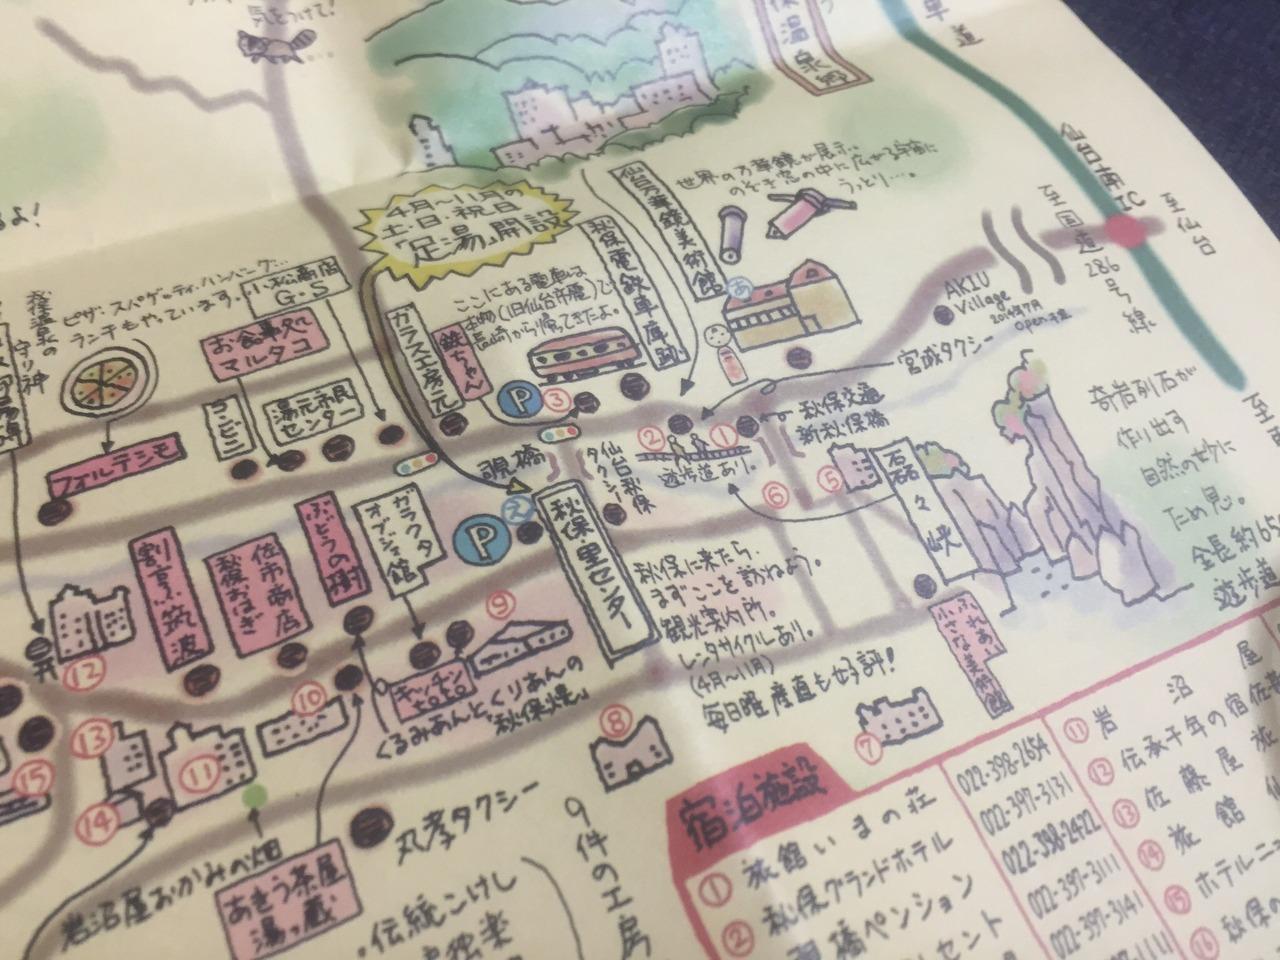 気をつけて!
車道
温泉郷
るよ!
仙台南IC
至仙台
至国道286号線
4月〜11月の
土・日・祝日
「足湯」開設
仙台万華鏡美術館
世界の万華鏡が展示…
のぞき窓の中に広がる宇宙に
うっとり…。
秋保電鉄車庫跡
ここにある電車は
本物(旧仙台市電)で
長崎から帰ってきたよ。
ガラス工房 元
鉄ちゃん
ピザ・スパゲッティ・ハンバーグ…
ランチもやっています。
小松商店
G.S
お食事処
マルタコ
コンビニ
湯元市民
センター
フォルテシモ
守り神
AKIU
Village
2014年7月
Open予定
宮城タクシー
秋保交通
新秋保橋
P
③
②
①
遊歩道あり。
⑤
⑥
磊々峡
奇岩列石が
作り出す
自然の妙に
ため息。
全長約65
遊歩道
覗橋
仙台秋保
タクシー
P
え
あ
秋保里センター
秋保に来たら、
まずここを訪ねよう。
観光案内所。
レンタサイクルあり。
(4月〜11月)
毎日曜産直も好評!
ガラクタ
オブジェ館
ぶどうの樹
佐市商店
秋保おはぎ
割烹 筑波
⑫
⑨
キッチン
くるみあんとくりあんの
「秋保焼」
⑩
⑪
⑬
⑭
⑮
⑧
⑦
ふれあい
小さな美術館
岩沼屋おかみの畑
あきう茶屋
湯っ蔵
丸孝タクシー
・伝統こけし
独楽
9件の工房
宿泊施設
① 旅館いまの荘 022-398-2654
② 秋保グランドホテル 022-397-3131
橋ペンション 022-398-2422
022-397-3111
022-397-3141
⑪ 岩沼屋
⑫ 伝承千年の宿佐
⑬ 佐藤屋旅
⑭ 旅館
⑮ ホテルニ
⑯ 秋保の